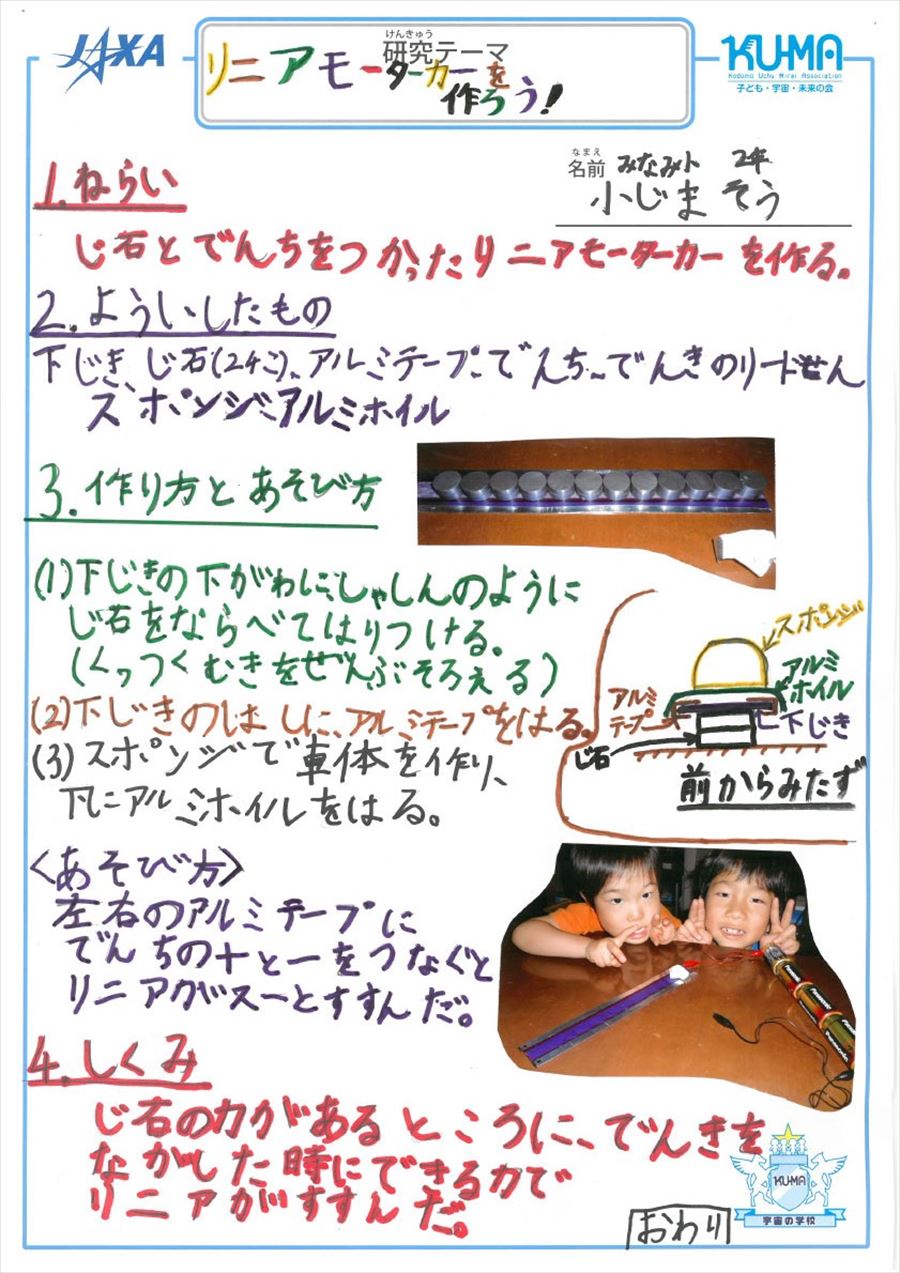 JAXA
けんきゅう
研究テーマ
リニアモーターカーを
作ろう!
KU-MA
Kodomo Uchu Mirai Association
子ども・宇宙・未来の会
なまえ
名前 みなみト 2年
小じま そう
1.ねらい
じ石とでんちをつかったリニアモーターカーを作る。
2.よういしたもの
下じき、じ石(24こ)、アルミテープ、でんち、でんきのリードせん
スポンジ、アルミホイル
3.作り方とあそび方
(1)下じきの下がわに、しゃしんのように
じ石をならべてはりつける。
(くっつくむきをぜんぶそろえる)
(2)下じきのはしに、アルミテープをはる。
(3)スポンジで車体を作り、
下にアルミホイルをはる。
スポンジ
アルミ
ホイル
アルミ
テープ
下じき
じ石
前からみたず
<あそび方>
左右のアルミテープに
でんちの+と-をつなぐと
リニアがスーとすすんだ。
Panasonic
Panasonic
Panasonic
4.しくみ
じ石の力があるところに、でんきを
ながした時にできる力で
リニアがすすんだ。
おわり
KU-MA
宇宙の学校